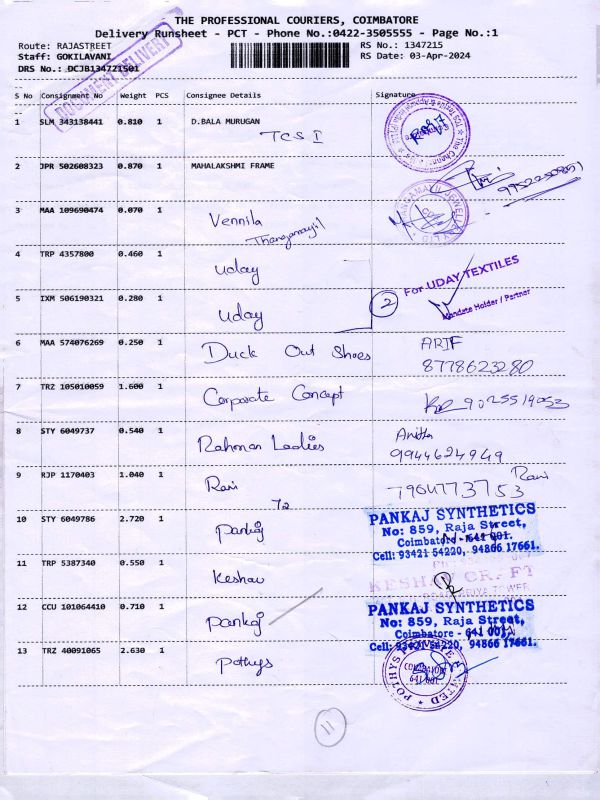 THE PROFESSIONAL COURIERS, COIMBATORE
Delivery Runsheet - PCT - Phone No.:0422-3505555 - Page No.:1
Route: RAJASTREET RS No.: 1347215
Staff: GOKILAVANI RS Date: 03-Apr-2024
DRS No.: DCJB134721501
DOCUMENT DELIVERY
S No Consignment No Weight PCS Consignee Details Signature
1 SLM 343138441 0.810 1 D.BALA MURUGAN
TCS I
2 JPR 502608323 0.870 1 MAHALAKSHMI FRAME
9952250951
3 MAA 109690474 0.070 1 Vennila
Thangamayil
4 TRP 4357800 0.460 1 uday
For UDAY TEXTILES
5 IXM 506190321 0.280 1 uday 2
Mandate Holder / Partner
6 MAA 574076269 0.250 1 Duck Out Shoes ARIF
8778623280
7 TRZ 105010059 1.600 1 Corporate Concept 9025519053
8 STY 6049737 0.540 1 Rahman Ladies Anitha
9944624949
9 RJP 1170403 1.040 1 Rani Rani
72 7904773753
10 STY 6049786 2.720 1 pankaj
PANKAJ SYNTHETICS
No: 859, Raja Street,
Coimbatore - 641 001.
Cell: 93421 54220, 94866 17661.
11 TRP 5387340 0.550 1 Keshav
KESHAV CRAFT
12 CCU 101064410 0.710 1 pankaj
PANKAJ SYNTHETICS
No: 859, Raja Street,
Coimbatore - 641 001.
Cell: 93421 54220, 94866 17661.
13 TRZ 40091065 2.630 1 Pothys
POTHYS PRIVATE LIMITED
COIMBATORE
641 001
11